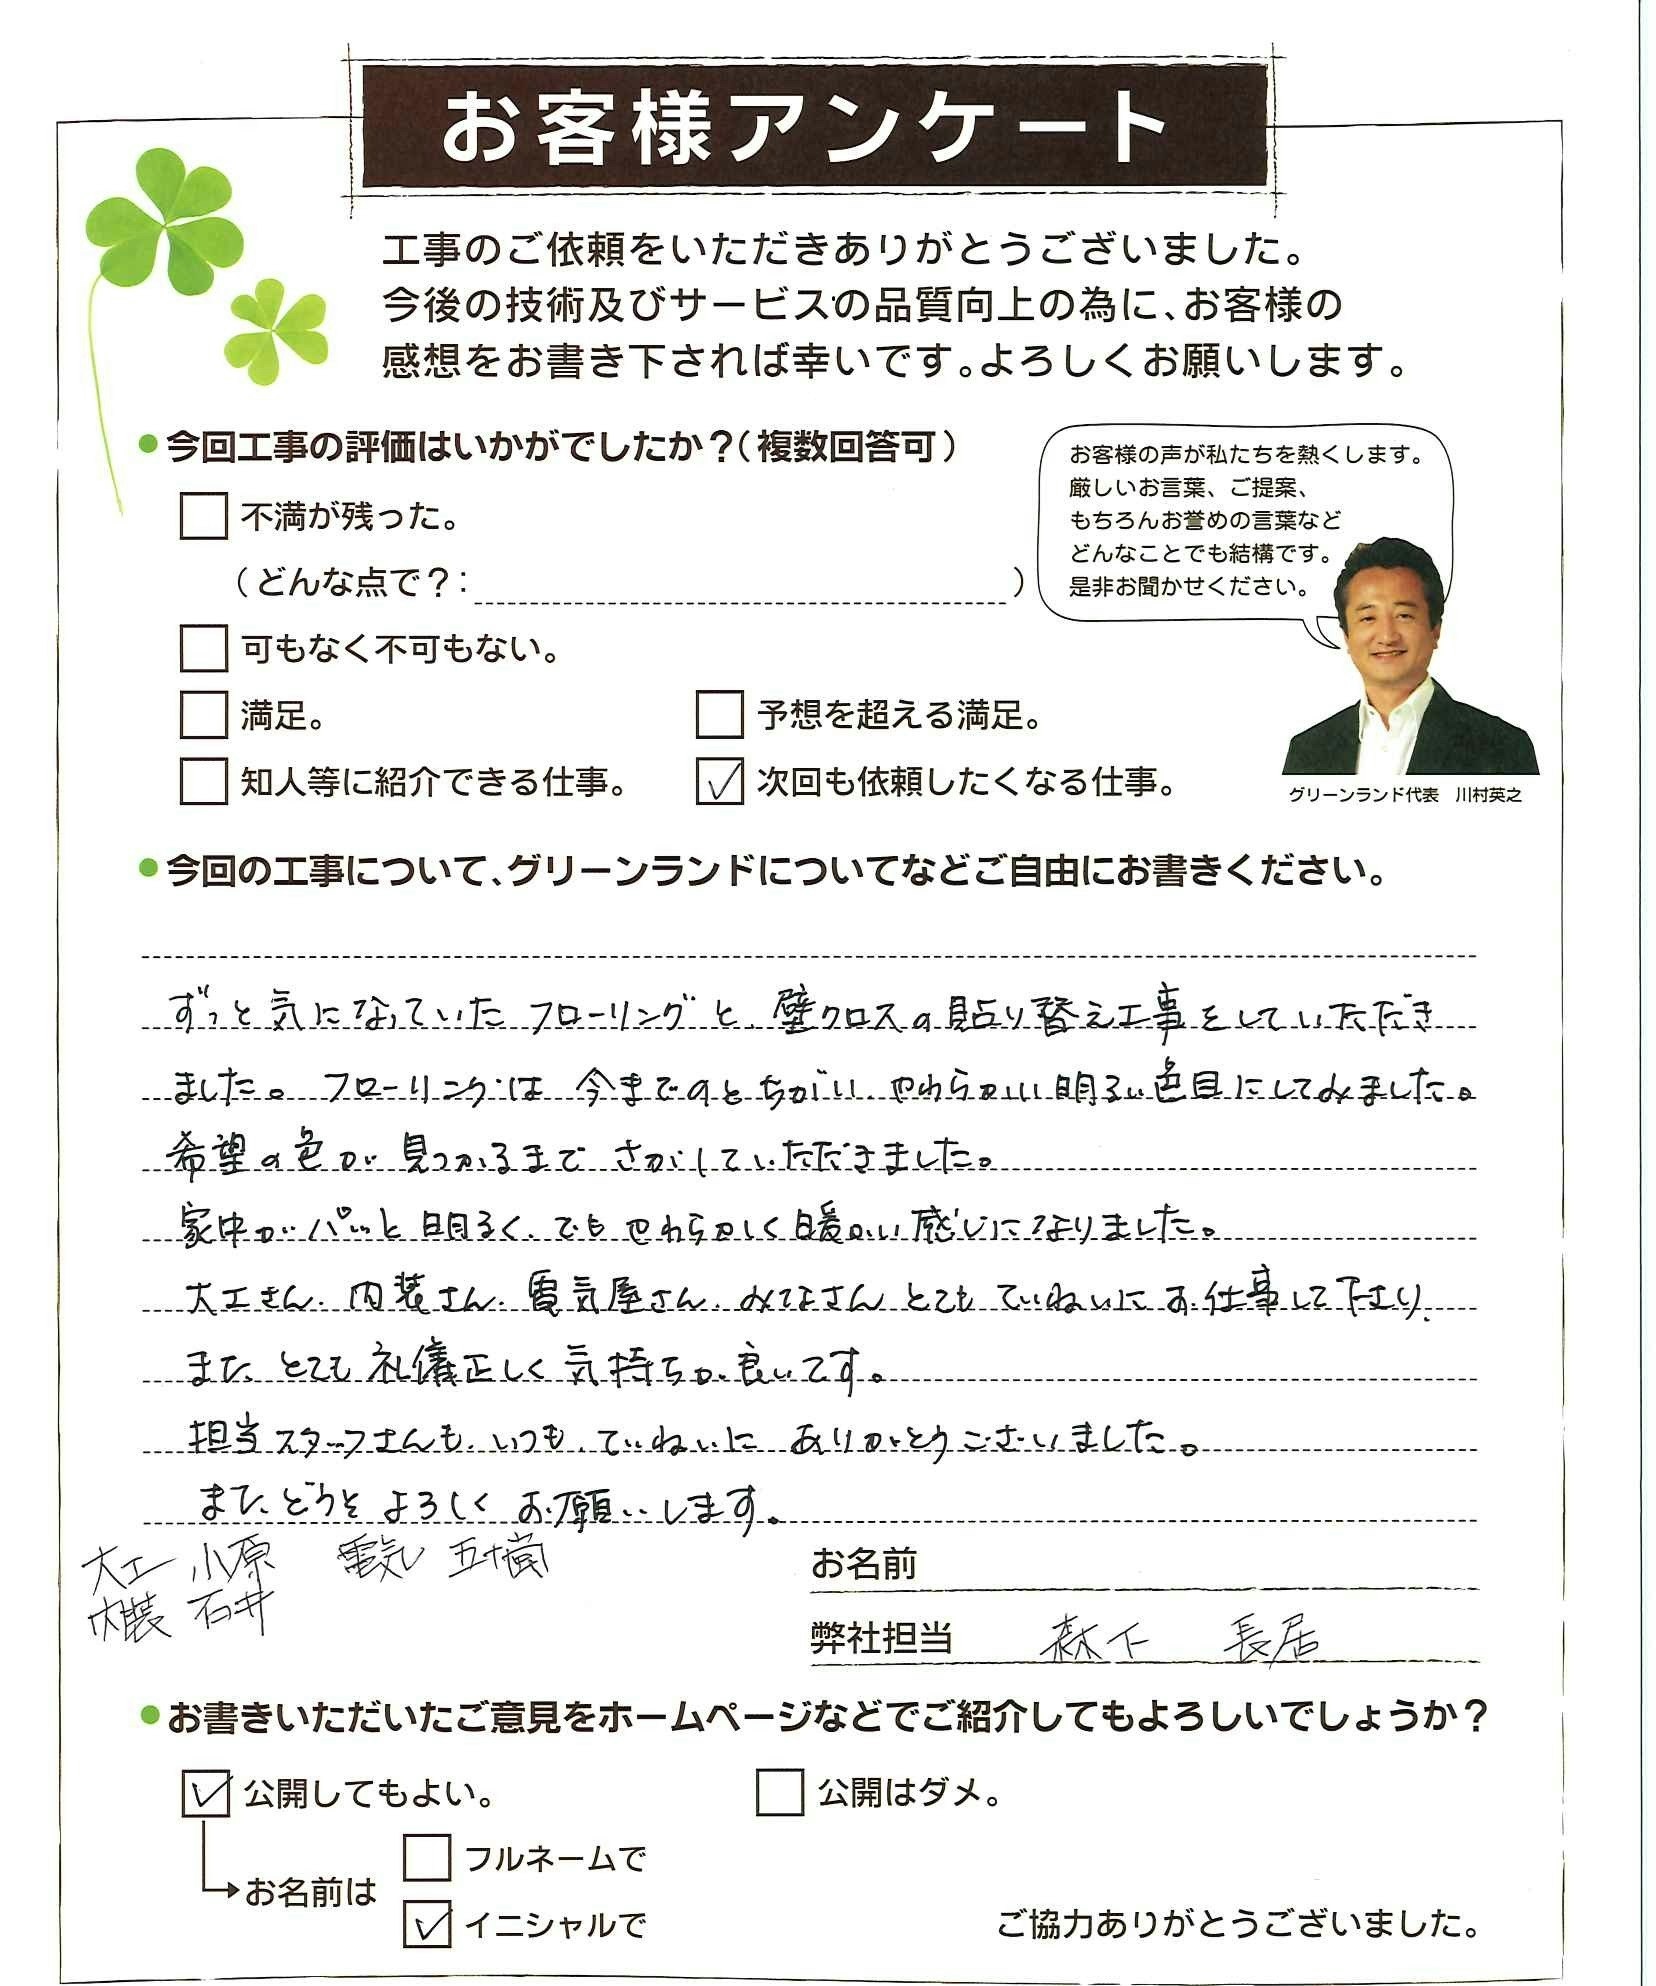 お客様アンケート
工事のご依頼をいただきありがとうございました。
今後の技術及びサービスの品質向上の為に、お客様の
感想をお書き下されば幸いです。よろしくお願いします。
●今回工事の評価はいかがでしたか？（複数回答可）
□ 不満が残った。
（どんな点で？：　　　　　）
□ 可もなく不可もない。
□ 満足。　□ 予想を超える満足。
□ 知人等に紹介できる仕事。　☑ 次回も依頼したくなる仕事。
お客様の声が私たちを熱くします。
厳しいお言葉、ご提案、
もちろんお誉めの言葉など
どんなことでも結構です。
是非お聞かせください。
グリーンランド代表　川村英之
●今回の工事について、グリーンランドについてなどご自由にお書きください。
ずっと気になっていたフローリングと、壁クロスの貼り替え工事をしていただき
ました。フローリングは今までのとちがい、やわらかい明るい色目にしてみました。
希望の色が見つかるまでさがしていただきました。
家中がパッと明るく、でもやわらかく暖かい感じになりました。
大工さん、内装さん、電気屋さん、みなさんとてもていねいにお仕事して下さり、
また、とても礼儀正しく気持ちが良いです。
担当スタッフさんも、いつも、ていねいにありがとうございました。
また、どうぞよろしくお願いします。
大工 小原　電気 五十嵐
内装 石井
お名前
弊社担当　森下　長居
●お書きいただいたご意見をホームページなどでご紹介してもよろしいでしょうか？
☑ 公開してもよい。　□ 公開はダメ。
お名前は　□ フルネームで
☑ イニシャルで
ご協力ありがとうございました。